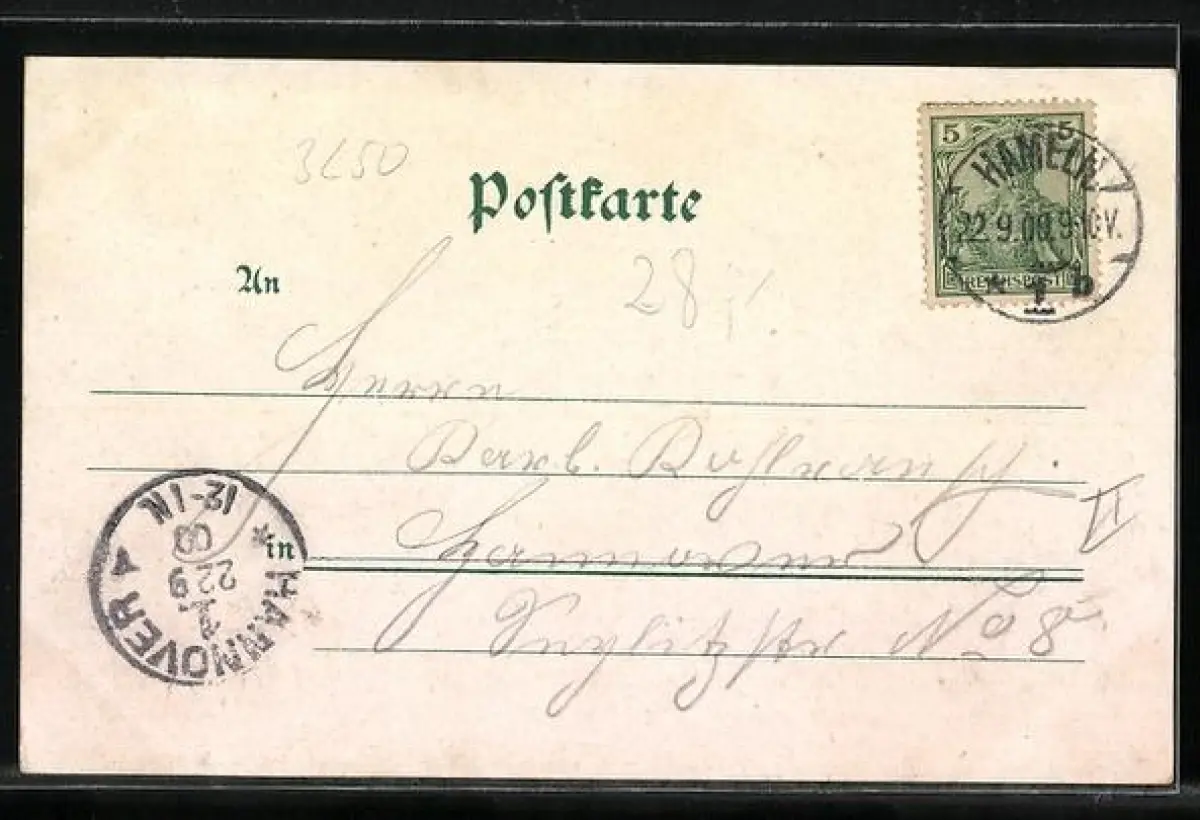 3650
Postkarte
5 5
HAMELN
22.9.00. 9-10V.
REICHSPOST
* 1 b
An
28
Herrn
in Hannover
No 8
II
HANNOVER
* 1.
22 9
00
12-1N